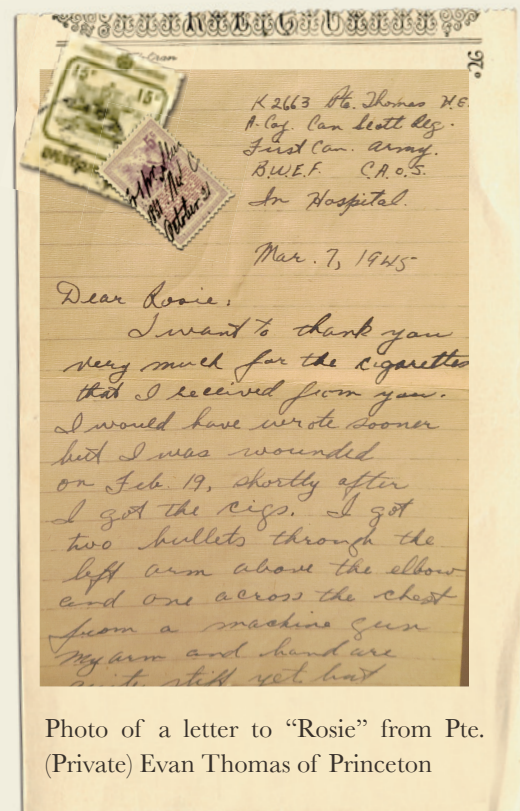 K 2663 Pte. Thomas H.E.
A-Coy. Can Scott Reg.
First Can. Army.
B.W.E.F. C.A.O.S.
In Hospital.
Mar. 7, 1945
Dear Rosie,
I want to thank you
very much for the cigarettes
that I received from you.
I would have wrote sooner
but I was wounded
on Feb. 19, shortly after
I got the cigs. I got
two bullets through the
left arm above the elbow
and one across the chest
from a machine gun
My arm and hand are
quite stiff yet but
15c 15c
October 31
Photo of a letter to “Rosie” from Pte.
(Private) Evan Thomas of Princeton